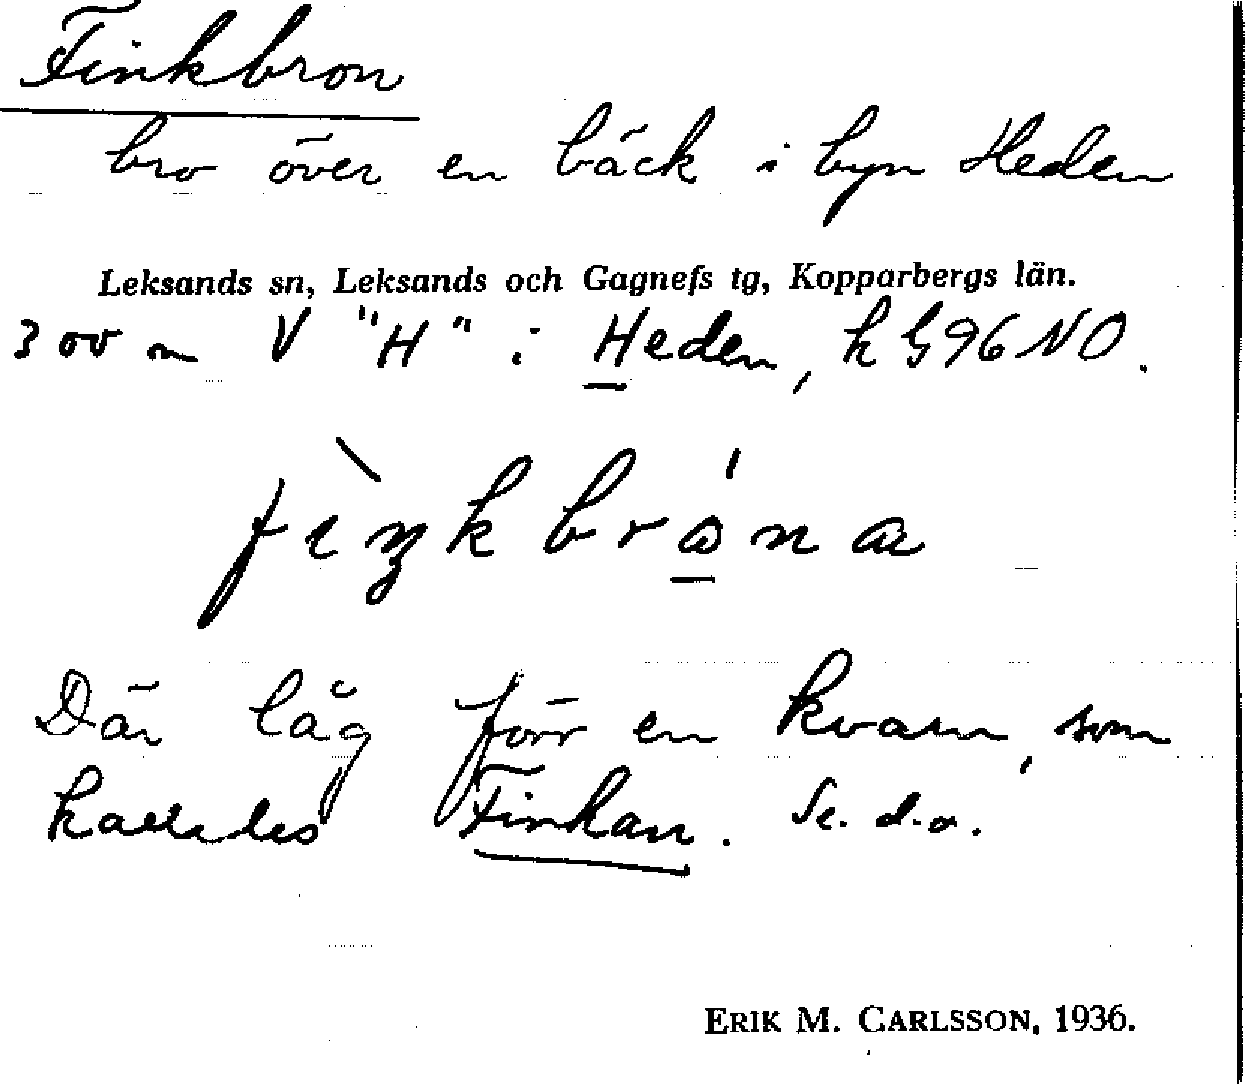 Finkbron
bro över en bäck i byn Heden
Leksands sn, Leksands och Gagnefs tg, Kopparbergs län.
300 m V "H" i Heden, k G96 NO.
Där låg förr en kvarn, som
kallades Finkan. Se. d.o.
ERIK M. CARLSSON, 1936.